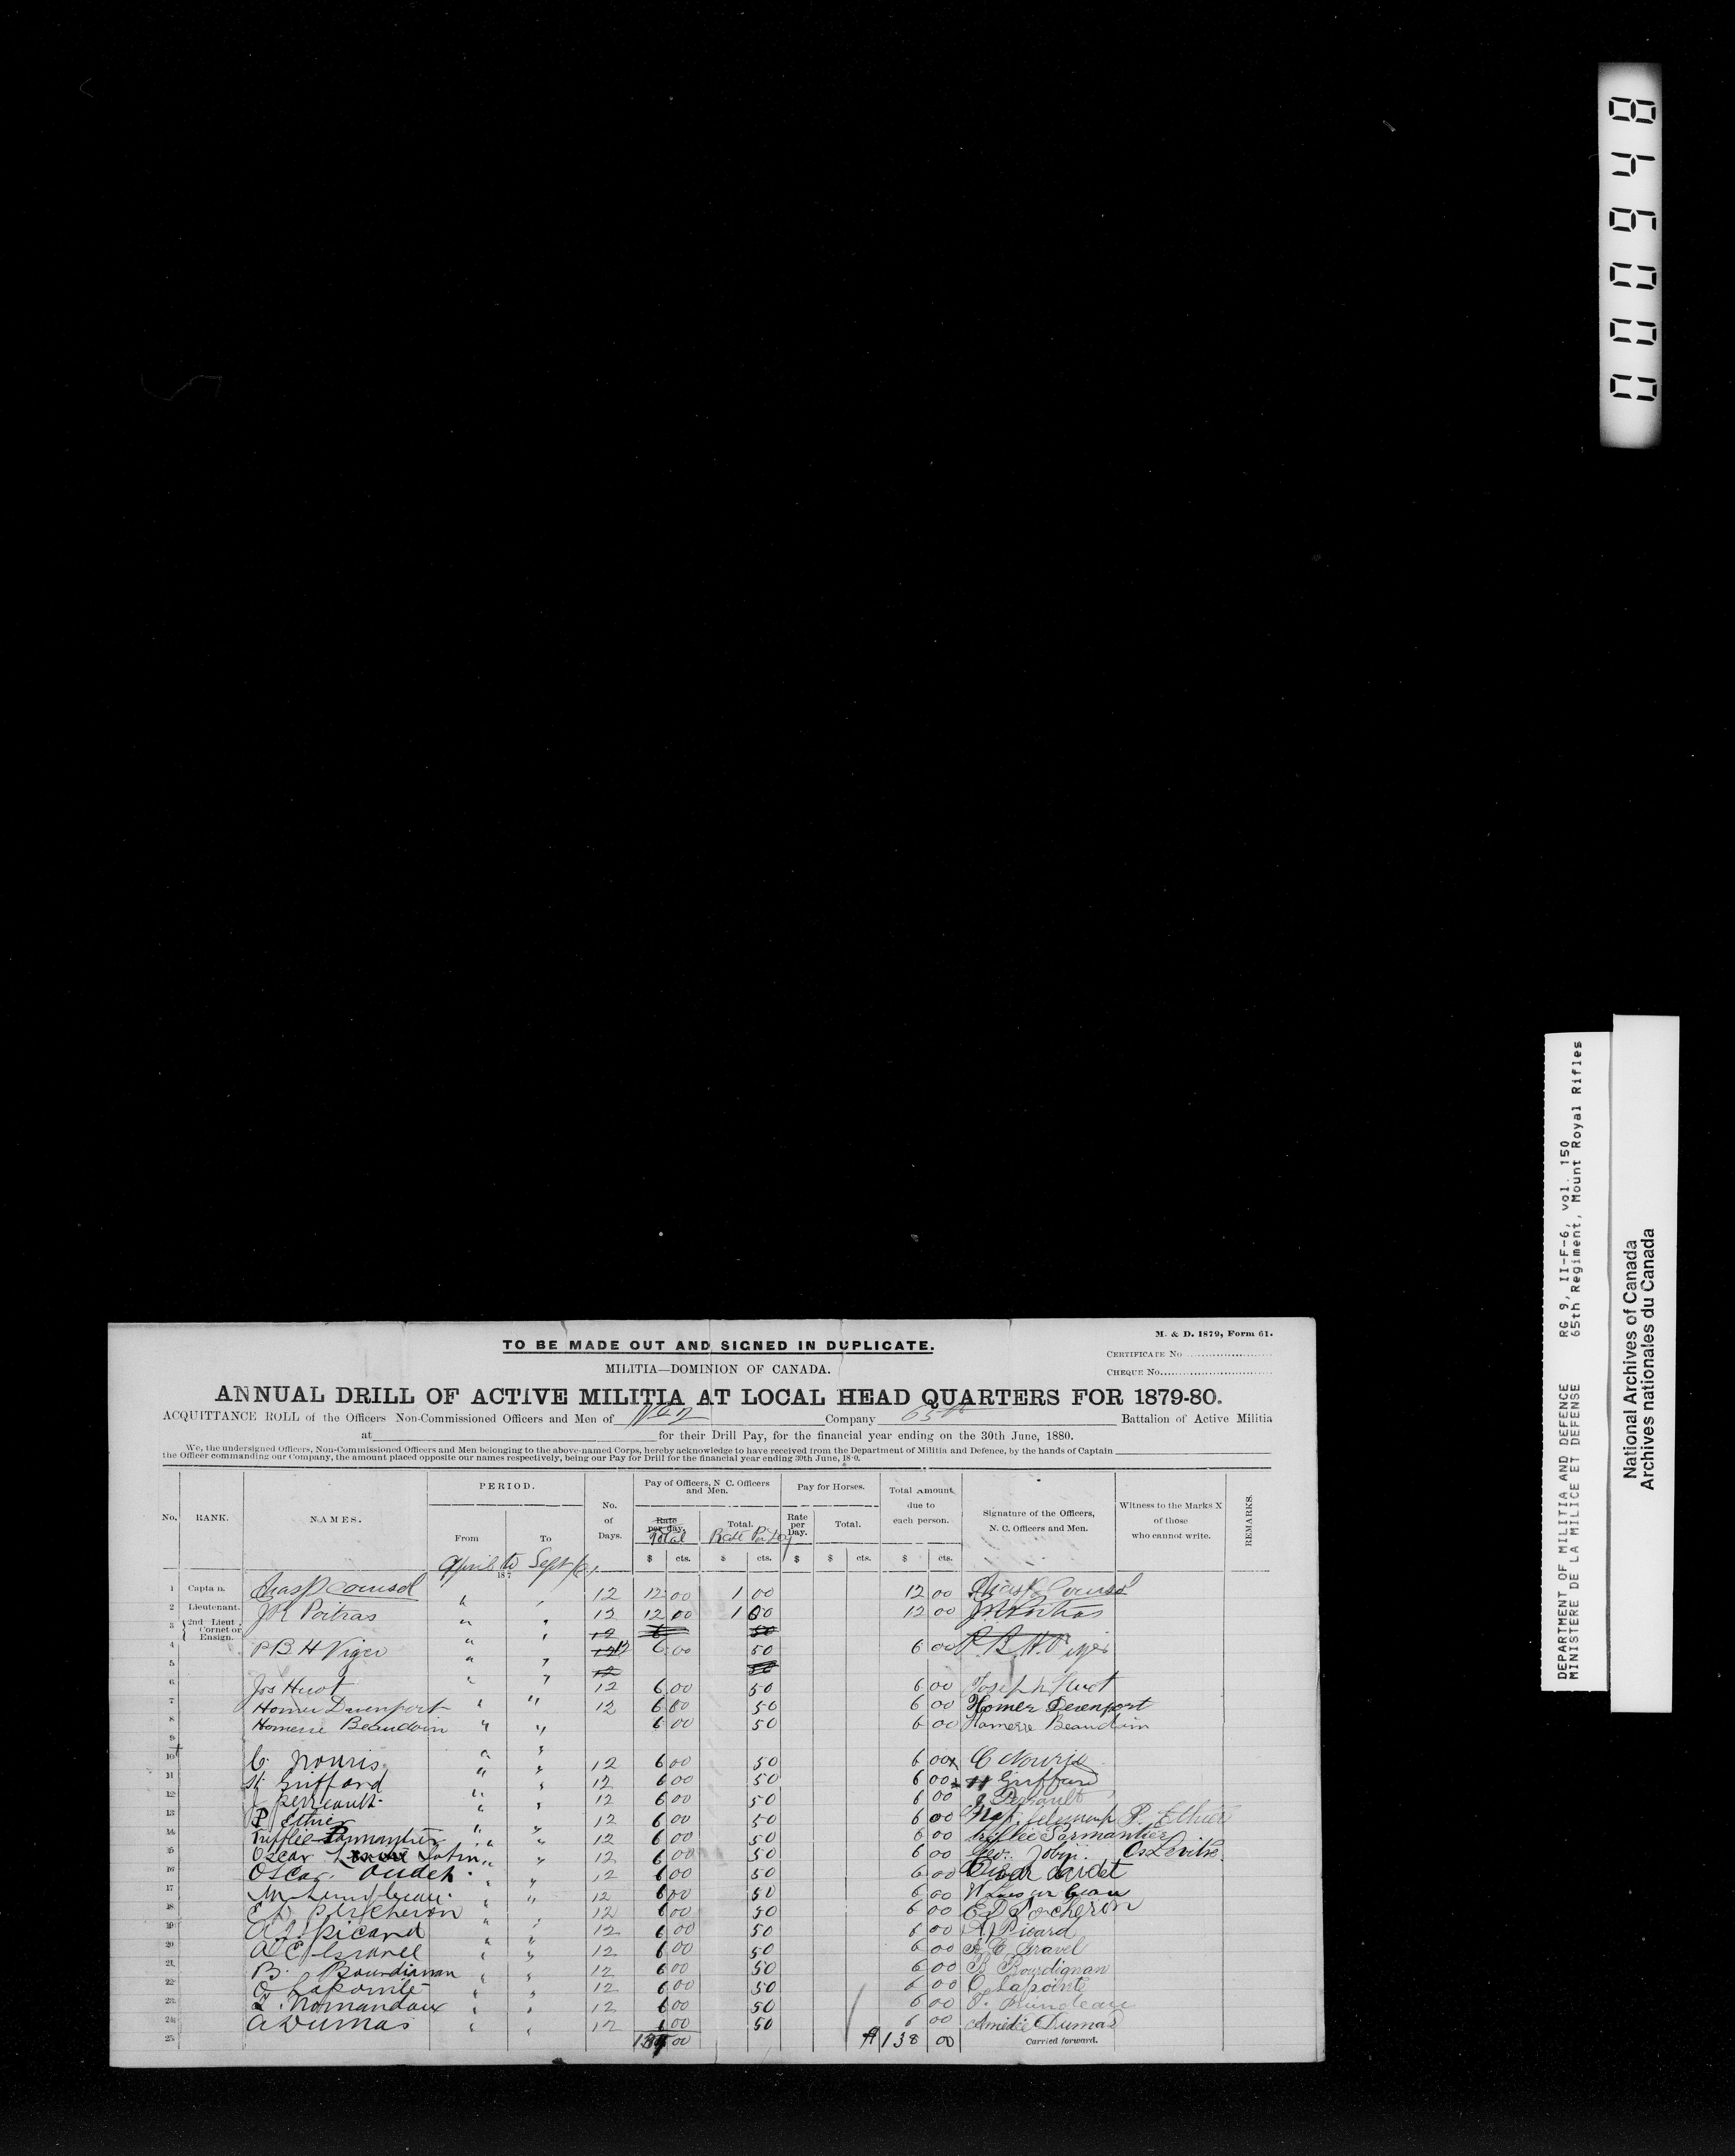 TO BE MADE OUT AND SIGNED IN DUPLICATE.
M. & D. 1879, Form 61.
MILITIA—DOMINION OF CANADA.
CERTIFICATE No
CHEQUE No
ANNUAL DRILL OF ACTIVE MILITIA AT LOCAL HEAD QUARTERS FOR 1879-80.
ACQUITTANCE ROLL of the Officers Non-Commissioned Officers and Men of No 2 Company 65th Battalion of Active Militia
at for their Drill Pay, for the financial year ending on the 30th June, 1880.
We, the undersigned Officers, Non-Commissioned Officers and Men belonging to the above-named Corps, hereby acknowledge to have received from the Department of Militia and Defence, by the hands of Captain
the Officer commanding our Company, the amount placed opposite our names respectively, being our Pay for Drill for the financial year ending 30th June, 18 0.
No. RANK. NAMES. PERIOD. From To No. of Days. Pay of Officers, N. C. Officers and Men. Rate per day. Total Total. Rate Per Day Pay for Horses. Rate per Day. Total. Total Amount due to each person. Signature of the Officers, N. C. Officers and Men. Witness to the Marks X of those who cannot write. REMARKS.
$ cts. $ cts. $ $ cts. $ cts.
April to Sept
187
1 Captain. Chas P Coursol 12 12 00 1 00 12 00 Coursol
2 Lieutenant. J R Poitras " 12 12 00 1 00 12 00 Poitras
3 2nd Lieut Cornet or Ensign. " 12 6 50
4 P B H Viger " 12 6 00 50 6 00 P. B. H. Viger
5 " 12 50
6 Jos Huot " 12 6 00 50 6 00 Joseph Huot
7 Homer Davenport " " 12 6 00 50 6 00 Homer Devenport
8 Homerie Beaudoin " " 6 00 50 6 00 Homerie Beaudoin
9
10 C. Nourie " " 12 6 00 50 6 00 x C Nourie
11 Griffard " " 12 6 00 50 6 00 x Giffard
12 J Perreault " " 12 6 00 50 6 00 J Perreault
13 P Ethier " " 12 6 00 50 6 00 P. Ethier
14 Trifflée Parmantier " " 12 6 00 50 6 00 trifflée Parmantier
15 Oscar " " 12 6 00 50 6 00 Geo. Jobin.
16 Oscar Oudet " " 12 6 00 50 6 00 Oudet
17 " " 12 6 00 50 6 00
18 E D Percheron " " 12 6 00 50 6 00 E D Porcheron
19 A J. Picard " " 12 6 00 50 6 00 A J Picard
20 A E Gravel " " 12 6 00 50 6 00 A E Gravel
21 B. Bourdignan " " 12 6 00 50 6 00 B Bourdignan
22 O Lapointe " " 12 6 00 50 6 00 O Lapointe
23 Normandeau " " 12 6 00 50 6 00
24 A Dumas " " 12 6 00 50 6 00 Amédée Dumas
25 00 $138 00 Carried forward.
000648
DEPARTMENT OF MILITIA AND DEFENCE RG 9, II-F-6, vol. 150
MINISTERE DE LA MILICE ET DEFENSE 65th Regiment, Mount Royal Rifles
National Archives of Canada
Archives nationales du Canada